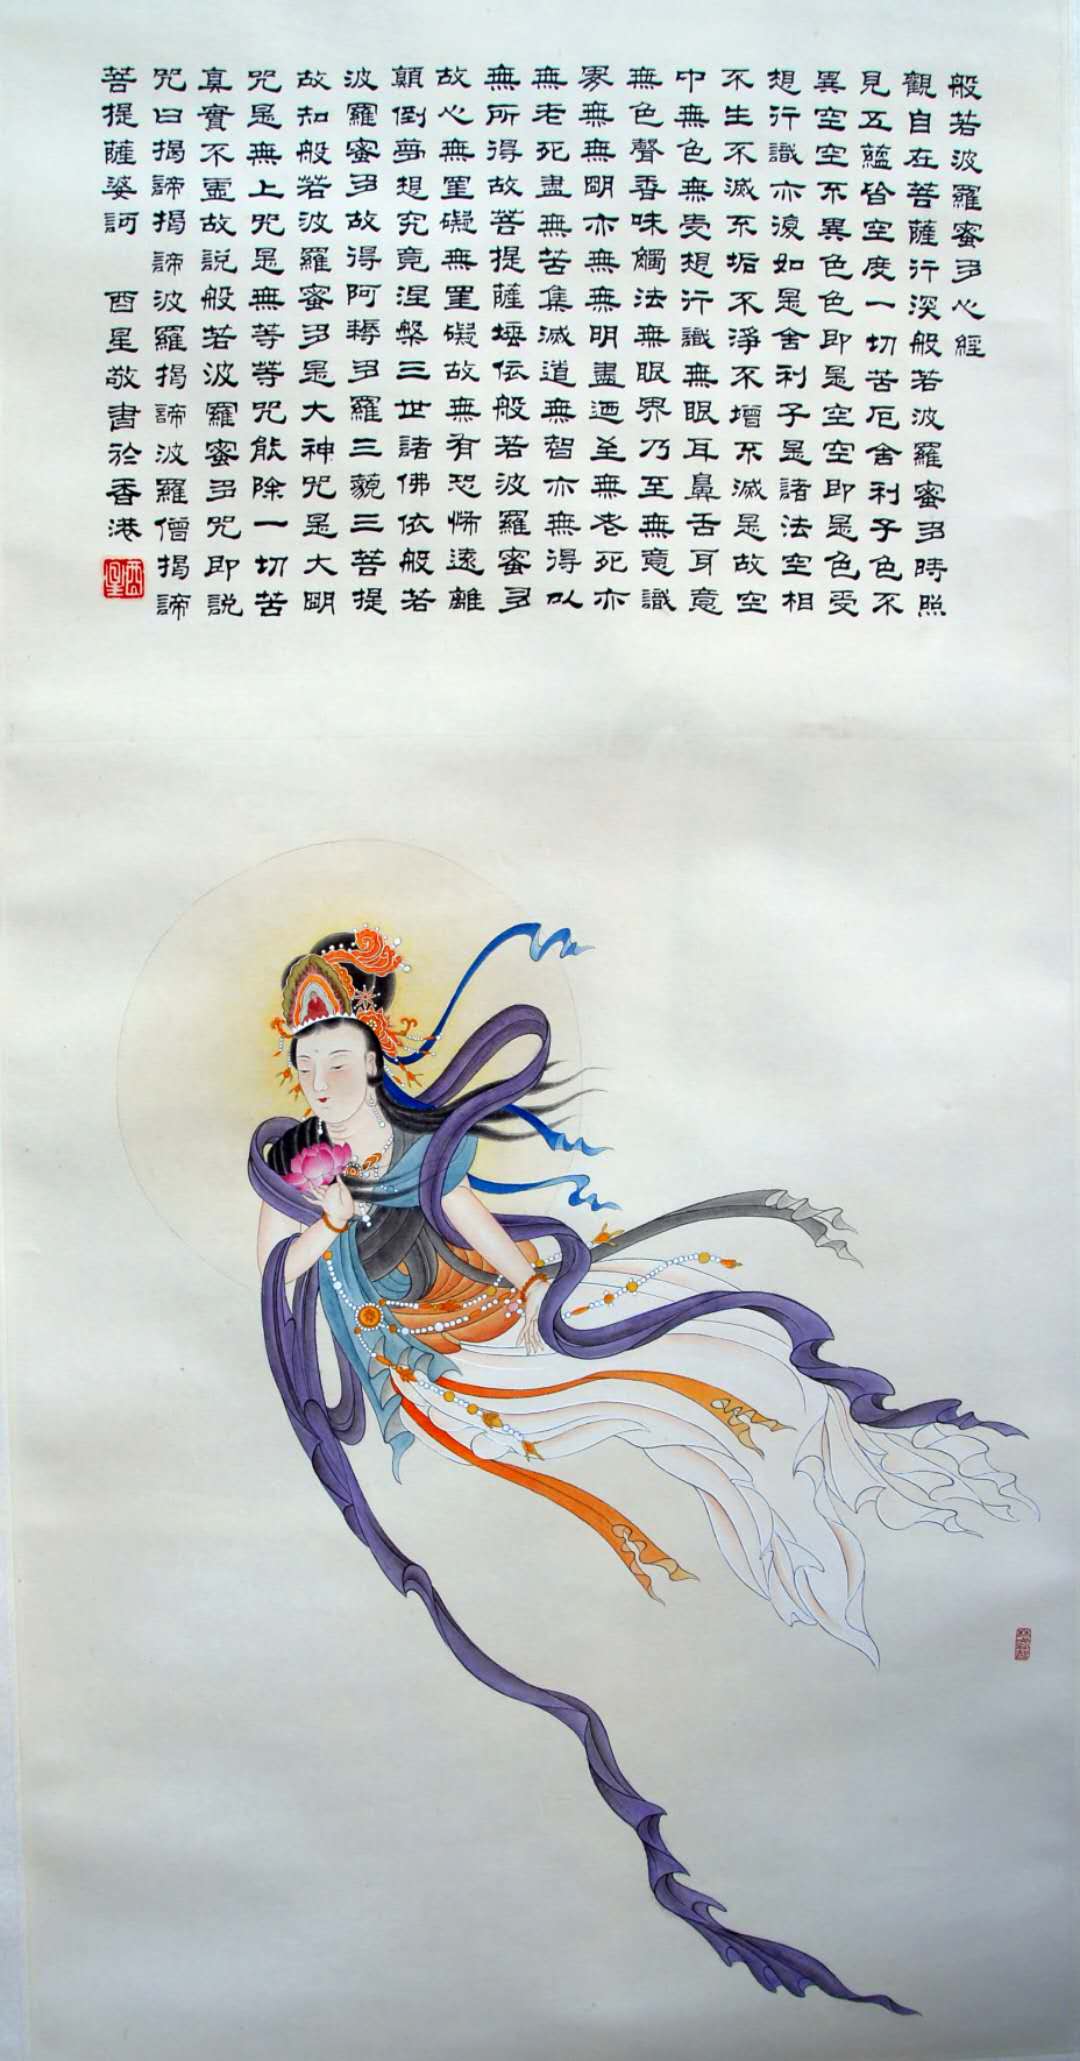 般若波羅蜜多心經
觀自在菩薩行深般若波羅蜜多時照
見五蘊皆空度一切苦厄舍利子色不
異空空不異色色即是空空即是色受
想行識亦復如是舍利子是諸法空相
不生不滅不垢不淨不增不滅是故空
中無色無受想行識無眼耳鼻舌身意
無色聲香味觸法無眼界乃至無意識
界無無明亦無無明盡迺至無老死亦
無老死盡無苦集滅道無智亦無得以
無所得故菩提薩埵依般若波羅蜜多
故心無罣礙無罣礙故無有恐怖遠離
顛倒夢想究竟涅槃三世諸佛依般若
波羅蜜多故得阿耨多羅三藐三菩提
故知般若波羅蜜多是大神咒是大明
咒是無上咒是無等等咒能除一切苦
真實不虛故說般若波羅蜜多咒即說
咒曰揭諦揭諦波羅揭諦波羅僧揭諦
菩提薩婆訶 酉星敬書於香港
酉星